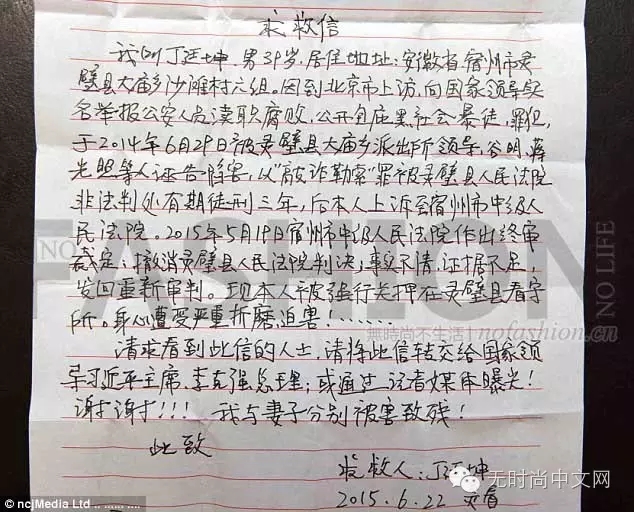 求救信
我叫丁廷坤,男39岁,居住地址:安徽省宿州市灵
璧县大庙乡沙滩村六组。因到北京市上访,向国家领导实
名举报公安人员渎职腐败,公开包庇黑社会暴徒,罪犯,
于2014年6月29日被灵璧县大庙乡派出所领导谷明,蒋
光照等人诬告陷害,以"敲诈勒索"罪被灵璧县人民法院
非法判处有期徒刑三年,后本人上诉至宿州市中级人
民法院。2015年5月19日宿州市中级人民法院作出终审
裁定,撤消灵璧县人民法院判决;事实不清,证据不足,
发回重新审判。现本人被强行关押在灵璧县看守
所。身心遭受严重折磨,迫害!……
请求看到此信的人士,请将此信转交给国家领
导习近平主席,李克强总理;或通过记者媒体曝光!
谢谢!!! 我与妻子分别被害致残!
此致
求救人:丁廷坤
2015.6.22
NO FASHION NO LIFE
無時尚不生活 nofashion.cn
无时尚中文网
ncjMedia Ltd